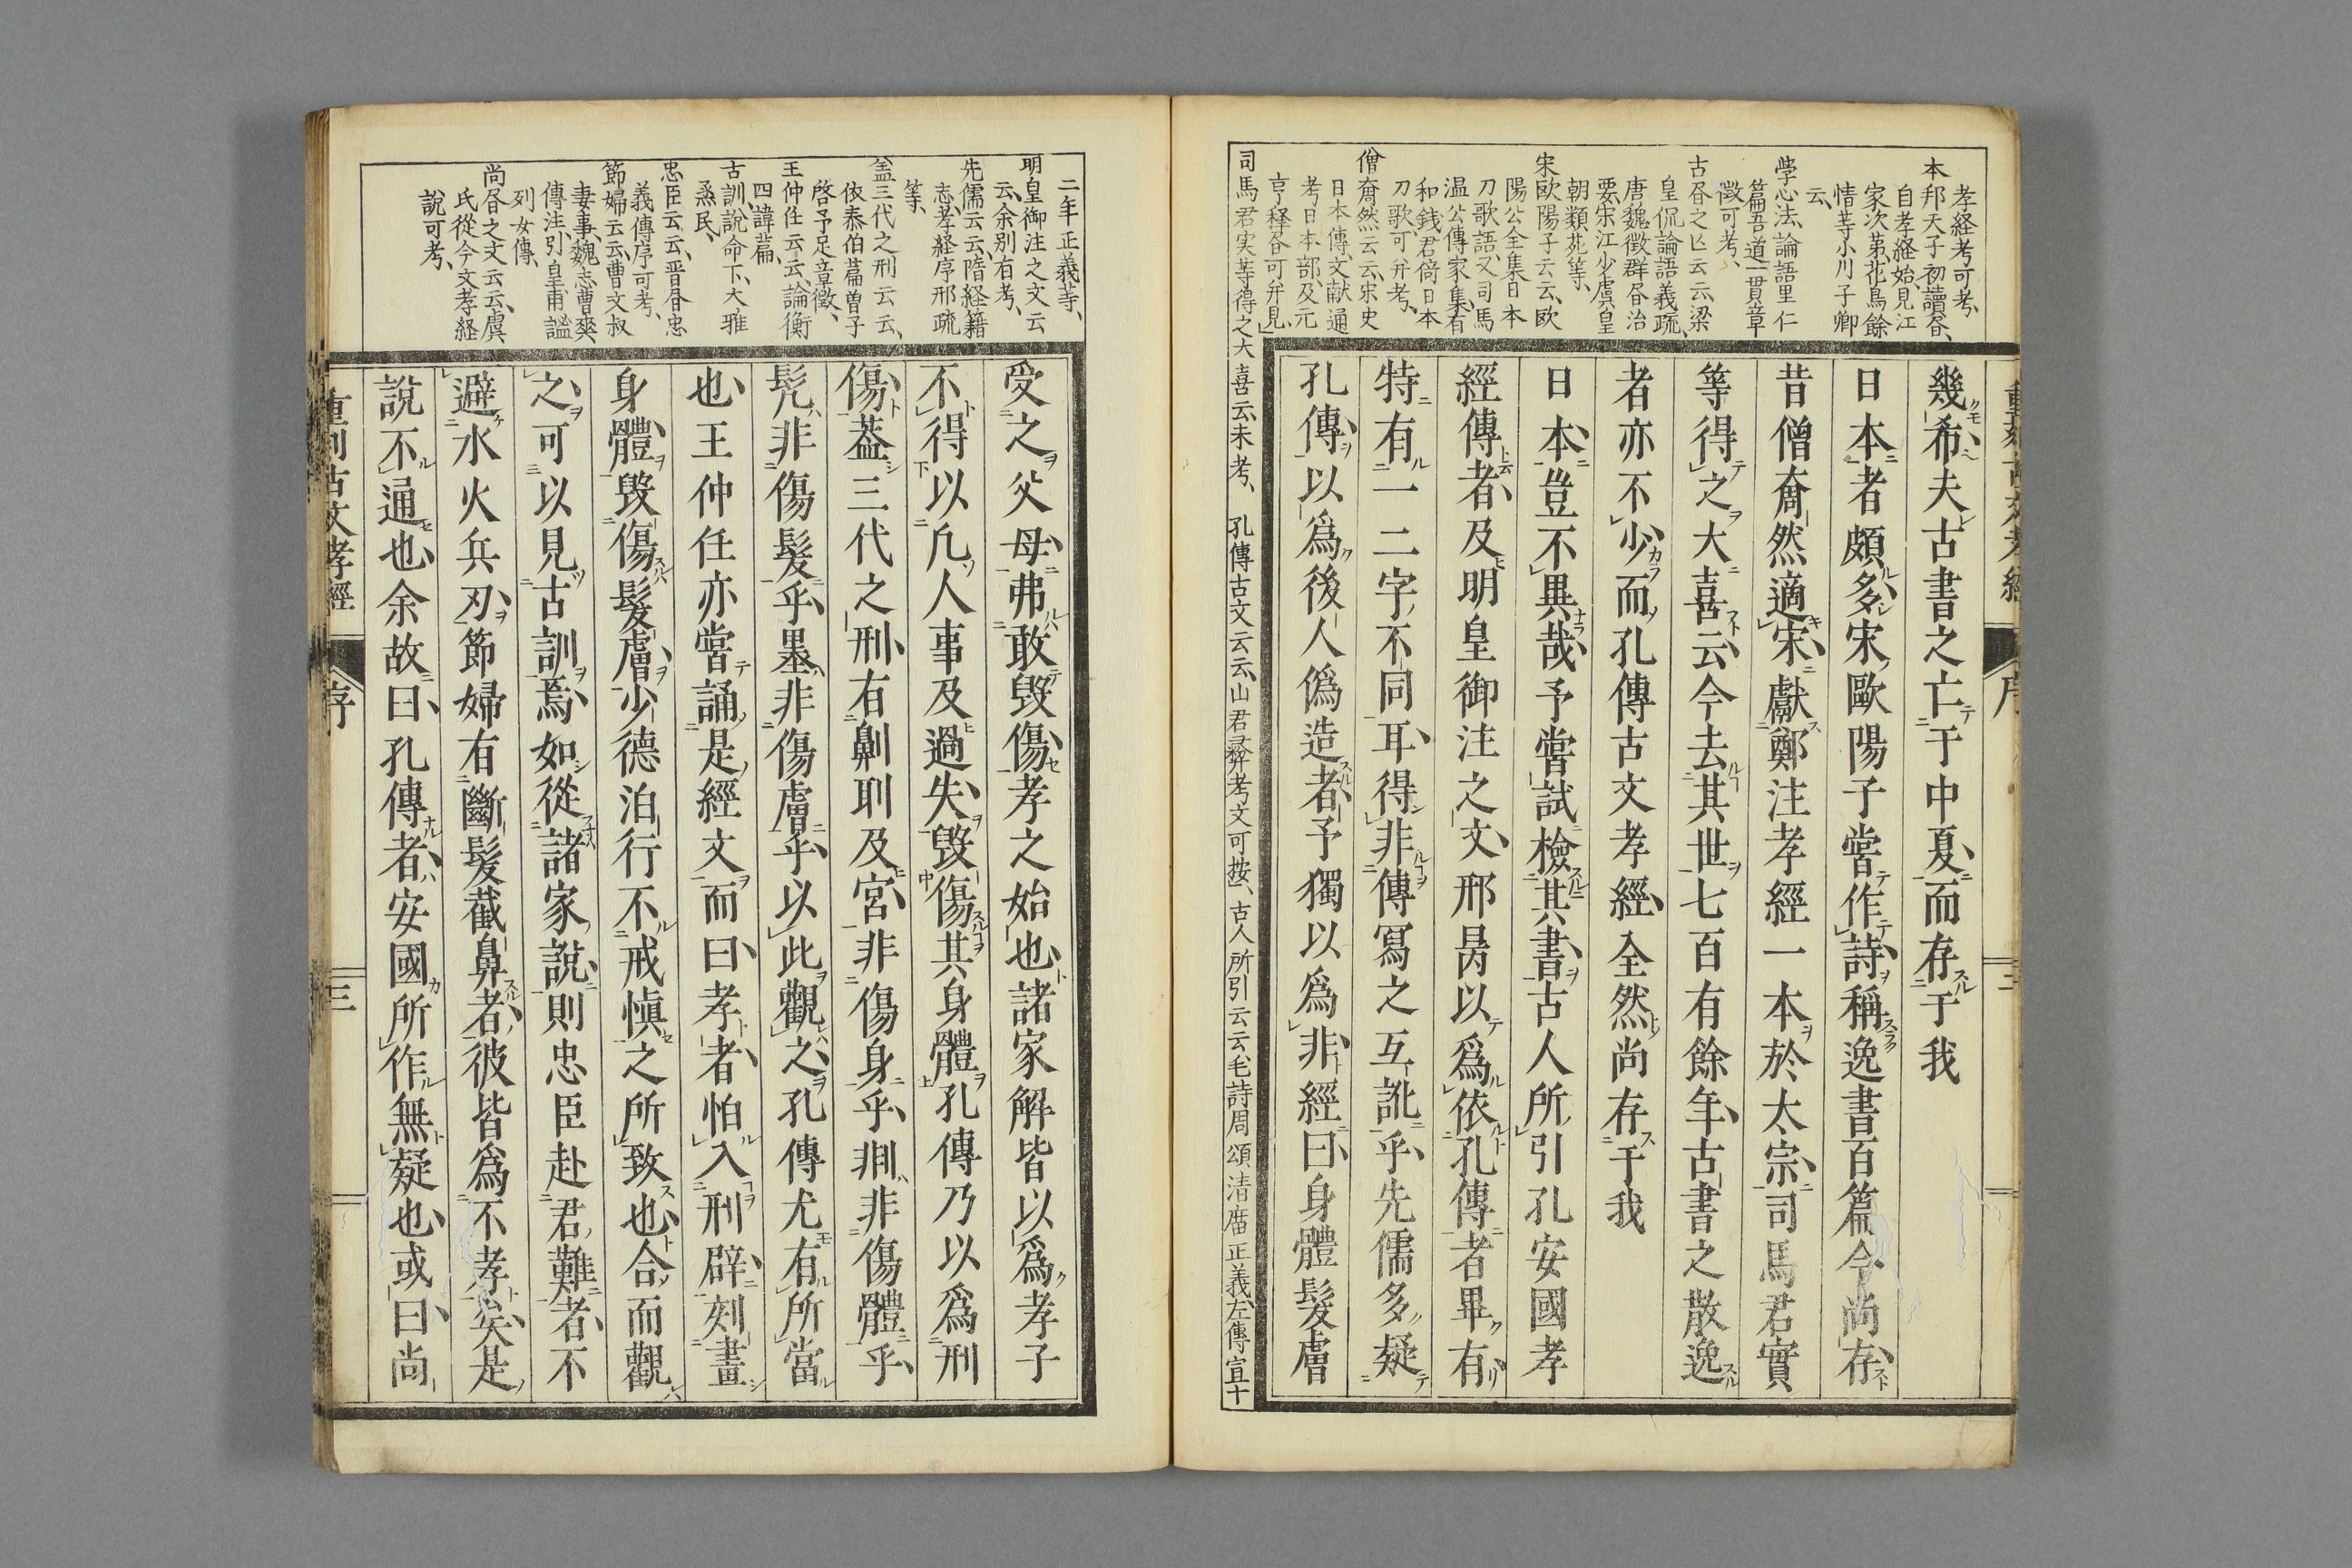 孝経考可考、
本邦天子初讀昏、
自孝経始、見江
家次第、花鳥餘
情等小川子卿
云、
学心法、論語里仁
篇吾道一貫章
徴可考、
古昏之亡云云、梁
皇侃論語義疏、
唐魏徴群昏治
要、宋江少虞皇
朝類苑等、
宋歐陽子云云、歐
陽公全集日本
刀歌語、又司馬
温公傳家集有
和銭君倚日本
刀歌、可并考、
僧奝然云云、宋史
日本傳、文献通
考日本部、及元
亨釋昏可并見、
司馬君実等得之大喜云、未考、 孔傳古文云云、山君彜考文可按、 古人所引云云、毛詩周頌清庿正義、左傳宣十
幾希、夫古書之亡于中夏、而存于我
日本者頗多、宋歐陽子嘗作詩、稱逸書百篇今尚存、
昔僧奝然適宋、獻鄭注孝經一本於太宗、司馬君實
等得之大喜云、今去其世七百有餘年、古書之散逸
者亦不少、而孔傳古文孝經、全然尚存于我
日本、豈不異哉、予嘗試檢其書、古人所引孔安國孝
經傳者、及明皇御注之文、邢昺以爲依孔傳者畢有、
特有一二字不同耳、得非傳寫之互訛乎、先儒多疑
孔傳、以爲後人僞造者、予獨以爲非、經曰、身體髮膚
二年正義等、
明皇御注之文云
云、余别有考、
先儒云云、隋経籍
志、孝経序邢疏
等、
盖三代之刑云云、
依泰伯篇曽子
啓予足章徴、
王仲任云云、論衡
四諱篇、
古訓、説命下、大雅
烝民、
忠臣云云、晋昏忠
義傳序可考、
節婦云云、曹文叔
妻事、魏志曹爽
傳注引、皇甫謐
列女傳、
尚昏之文云云、虞
氏從今文孝経
説可考、
受之父母、弗敢毀傷、孝之始也、諸家解皆以爲孝子
不得以凡人事及過失、毀傷其身體、孔傳乃以爲刑
傷、葢三代之刑、有劓刵及宮、非傷身乎、剕非傷體乎、
髡非傷髮乎、墨非傷膚乎、以此觀之、孔傳尤有所當
也、王仲任亦嘗誦是經文、而曰、孝者、怕入刑辟、刻畫
身體、毀傷髮膚、少德泊行、不戒慎之所致也、合而觀
之、可以見古訓焉、如從諸家説、則忠臣赴君難者、不
避水火兵刃、節婦有斷髮截鼻者、彼皆爲不孝矣、是
說不通也、余故曰、孔傳者、安國所作無疑也、或曰、尚
重刻古文孝經 序 三